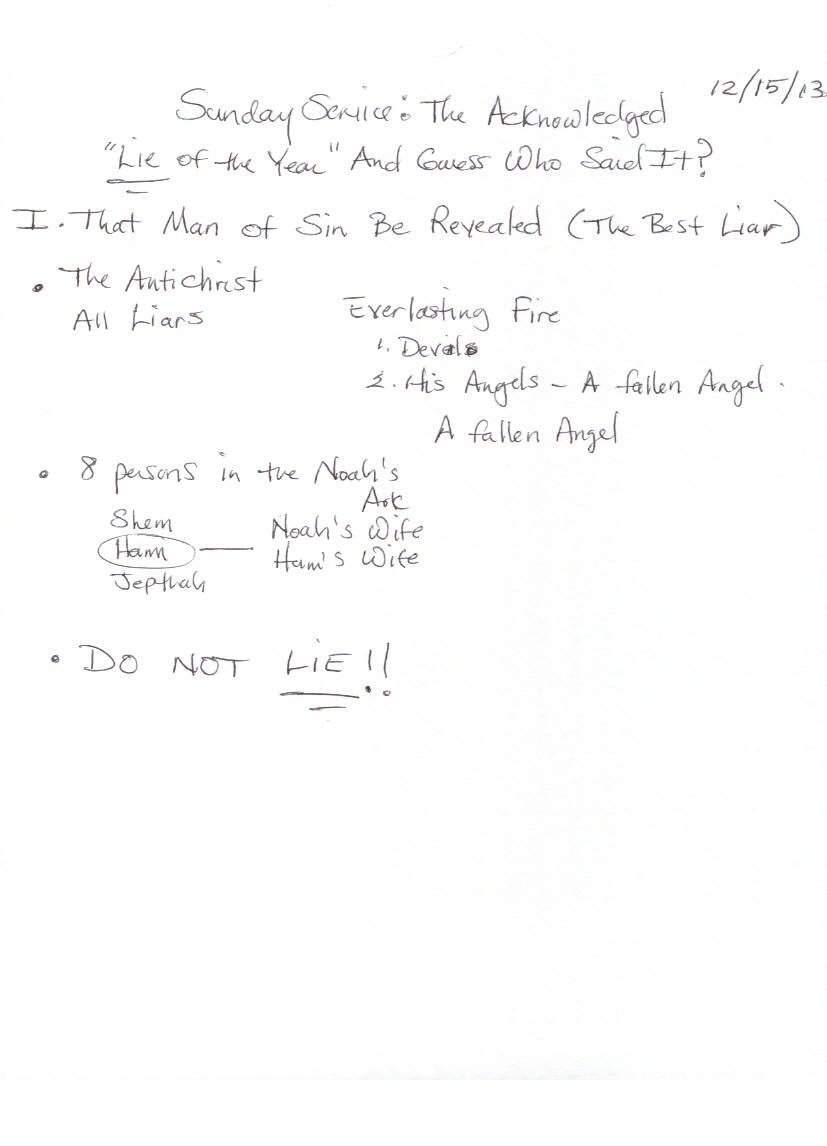 12/15/13
Sunday Service: The Acknowledged
"Lie of the Year" And Guess Who Said It?
I. That Man of Sin Be Revealed (The Best Liar)
• The Antichrist
All Liars
Everlasting Fire
1. Devils
2. His Angels - A fallen Angel.
A fallen Angel
• 8 persons in the Noah's
Ark
Shem
Ham
Jepthah
Noah's Wife
Ham's Wife
• DO NOT LIE!!